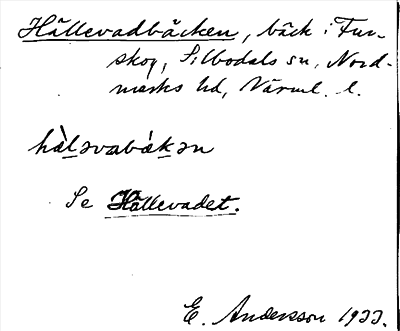 Hällevadbäcken, bäck i Fur-
skog, Silbodals sn, Nord-
marks hd, Värml. l.
hä̀lǝvabä́kǝn
Se Hällevadet.
E. Andersson 1933.